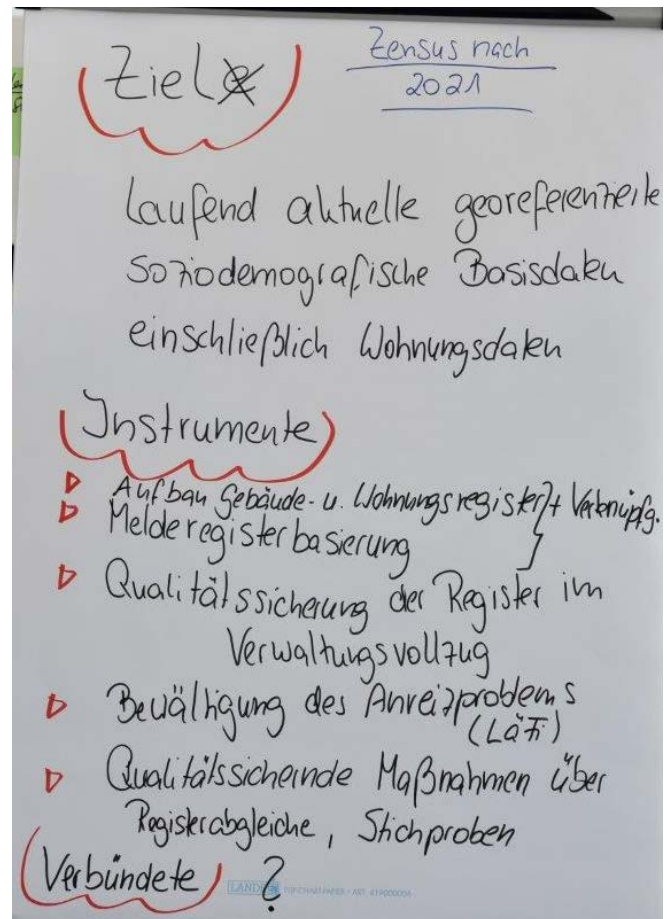 Ziel
Zensus nach
2021
laufend aktuelle georeferenzierte
soziodemografische Basisdaten
einschließlich Wohnungsdaten
Instrumente
Aufbau Gebäude- u. Wohnungsregister } + Verknüpfg.
Melderegisterbasierung
Qualitätssicherung der Register im
Verwaltungsvollzug
Bewältigung des Anreizproblems
(LäFi)
Qualitätssichernde Maßnahmen über
Registerabgleiche, Stichproben
Verbündete ?